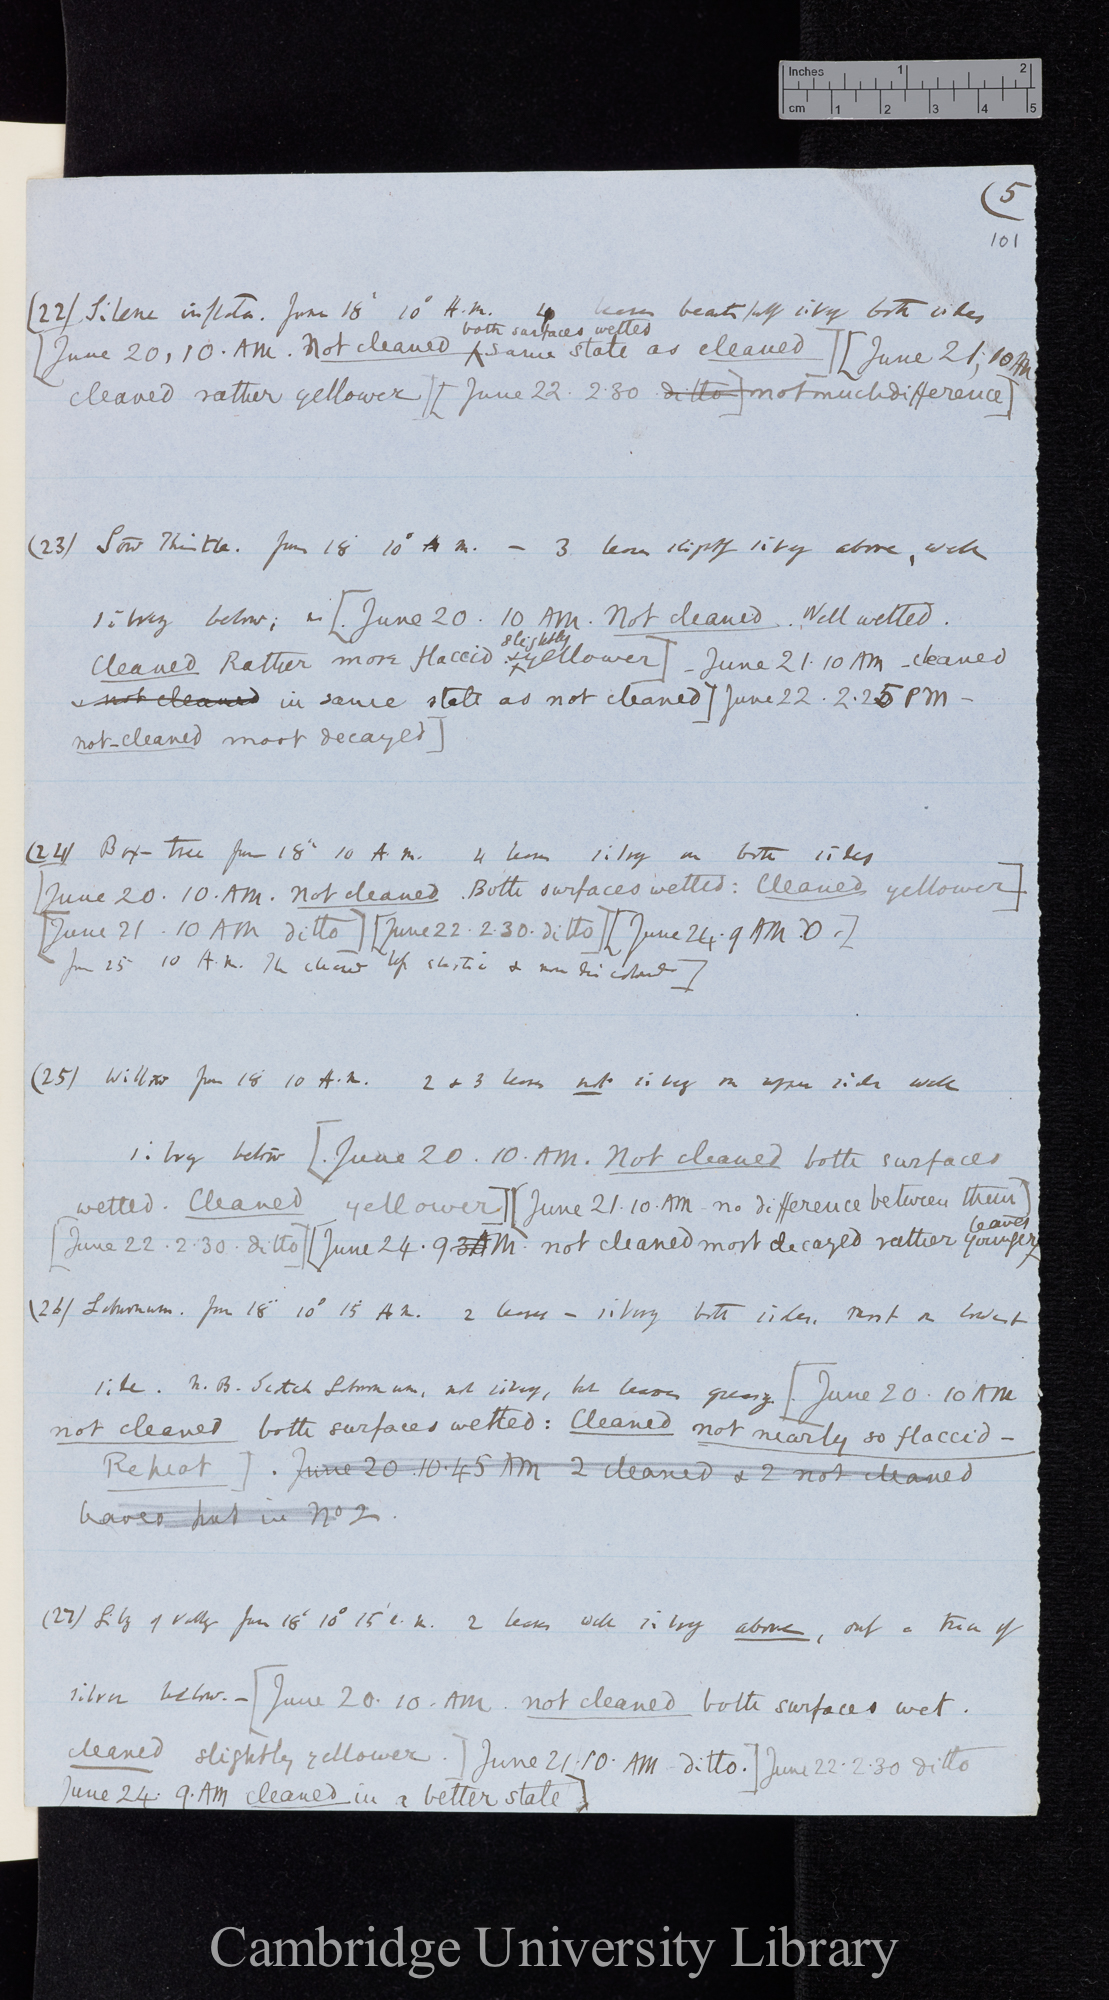 Inches 1 2
cm 1 2 3 4 5
(5
101
(22) Silene inflata. June 18' 10° A.M. 4 leaves beautifully silvy both sides
both surfaces wetted
[June 20, 10. AM. Not cleaned same state as cleaned] [June 21, 10 AM
cleaned rather yellower] [June 22. 2.30 ditto] not much difference]
(23) Sow Thistle. June 18' 10° A.m. – 3 leaves slightly silvy above, well
silvery below; [June 20. 10 AM. Not cleaned. Well wetted.
slightly
Cleaned Rather more flaccid & yellower] – June 21. 10 AM – cleaned
& not cleaned in same state as not cleaned] June 22. 2.25 PM –
not-cleaned most decayed]
(24) Box-tree June 18' 10 A.m. 4 leaves silvy on both sides
[June 20. 10. AM. Not cleaned. Both surfaces wetted: Cleaned yellower]
[June 21. 10 AM ditto] [June 22. 2.30. ditto] [June 24. 9 AM D.]
June 25 10 A.M. The cleaned leaf elastic & non discoloured]
(25) Willow June 18 10 A.M. 2 & 3 leaves not silvy on upper side well
silvy below [June 20. 10. AM. Not cleaned both surfaces
wetted. Cleaned yellower] [June 21. 10. AM – no difference between them]
leaves
[June 22. 2.30. ditto] [June 24. 9 AM. not cleaned most decayed rather younger]
(26) Laburnum. June 18' 10° 15 A.M. 2 leaves – silvery both sides. most on lowest
side. N.B. Scotch Laburnum, not silvy, but leaves greasy. [June 20. 10 AM
not cleaned both surfaces wetted: Cleaned not nearly so flaccid –
Repeat]. June 20. 10.45 AM 2 cleaned & 2 not cleaned
leaves put in No 2.
(27) Lily of Valley June 18' 10° 15' a.m. 2 leaves well silvy above, only a trace of
silver below. – [June 20. 10. AM. not cleaned both surfaces wet.
cleaned slightly yellower.] June 21. 10. AM – ditto.] June 22. 2.30 ditto
June 24. 9. AM cleaned in a better state]
Cambridge University Library